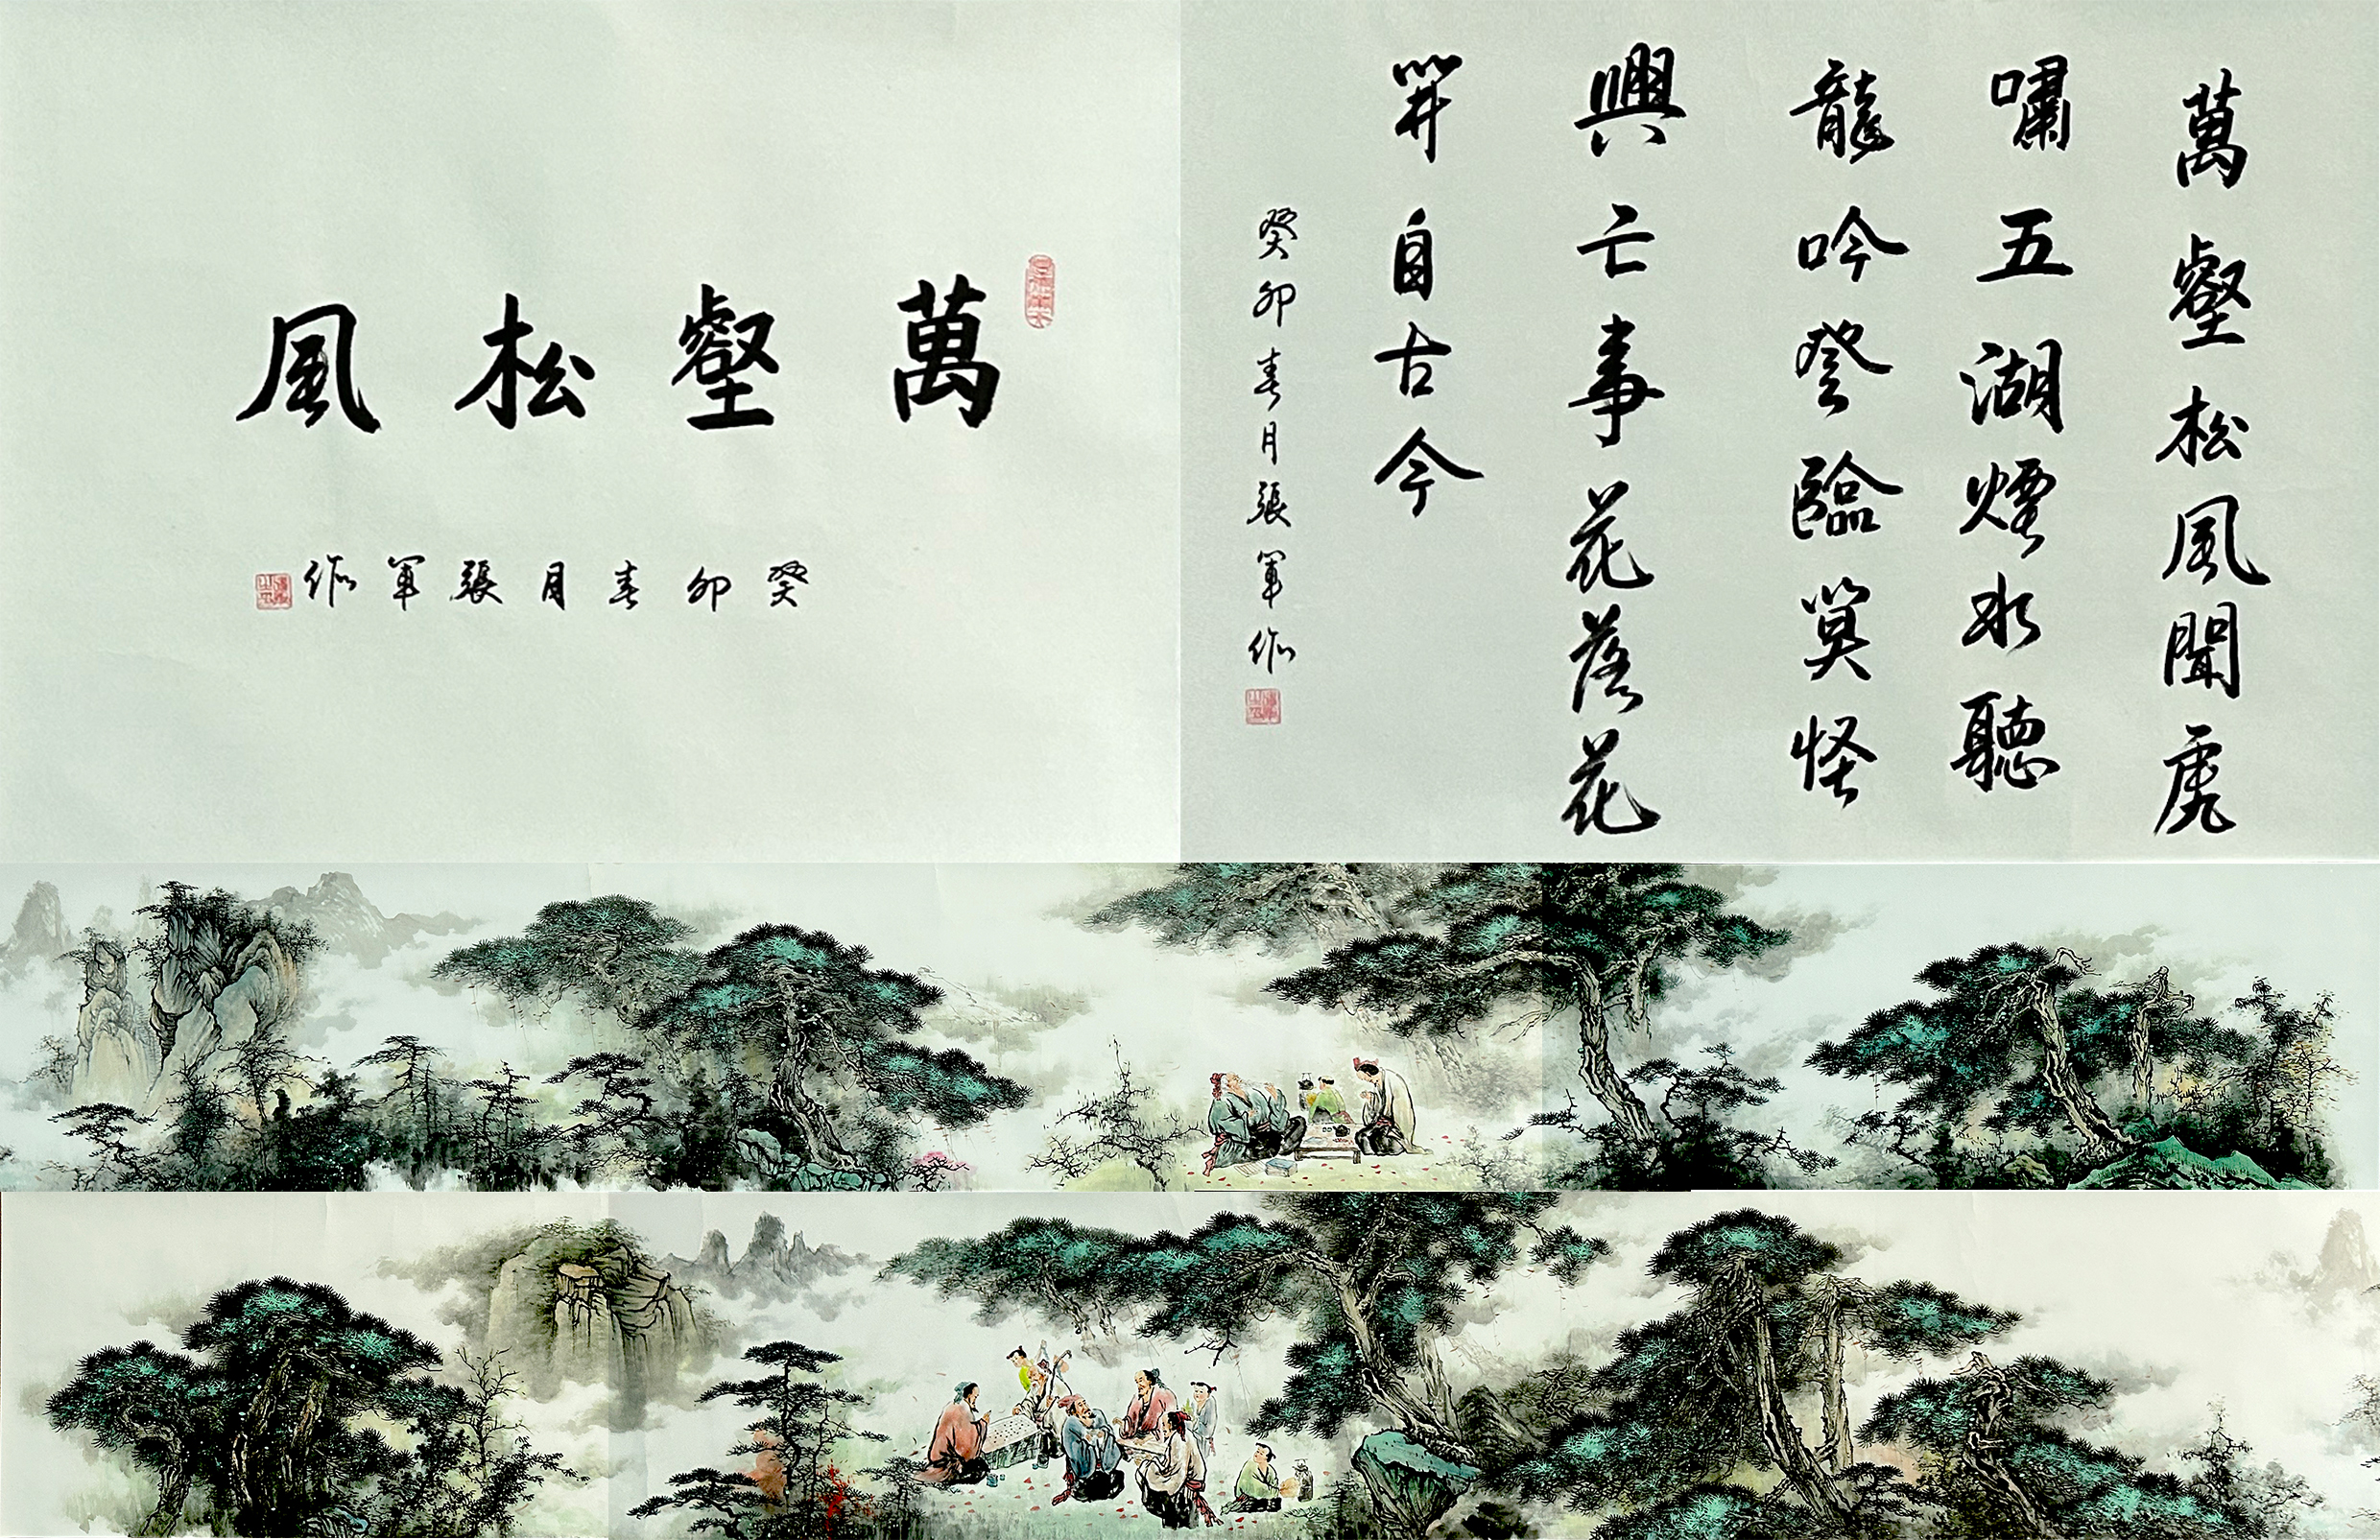 萬壑松風
癸卯春月張軍作
萬壑松風聞虎
嘯五湖煙水聽
龍吟登臨莫怪
興亡事花落花
開自古今
癸卯春月張軍作